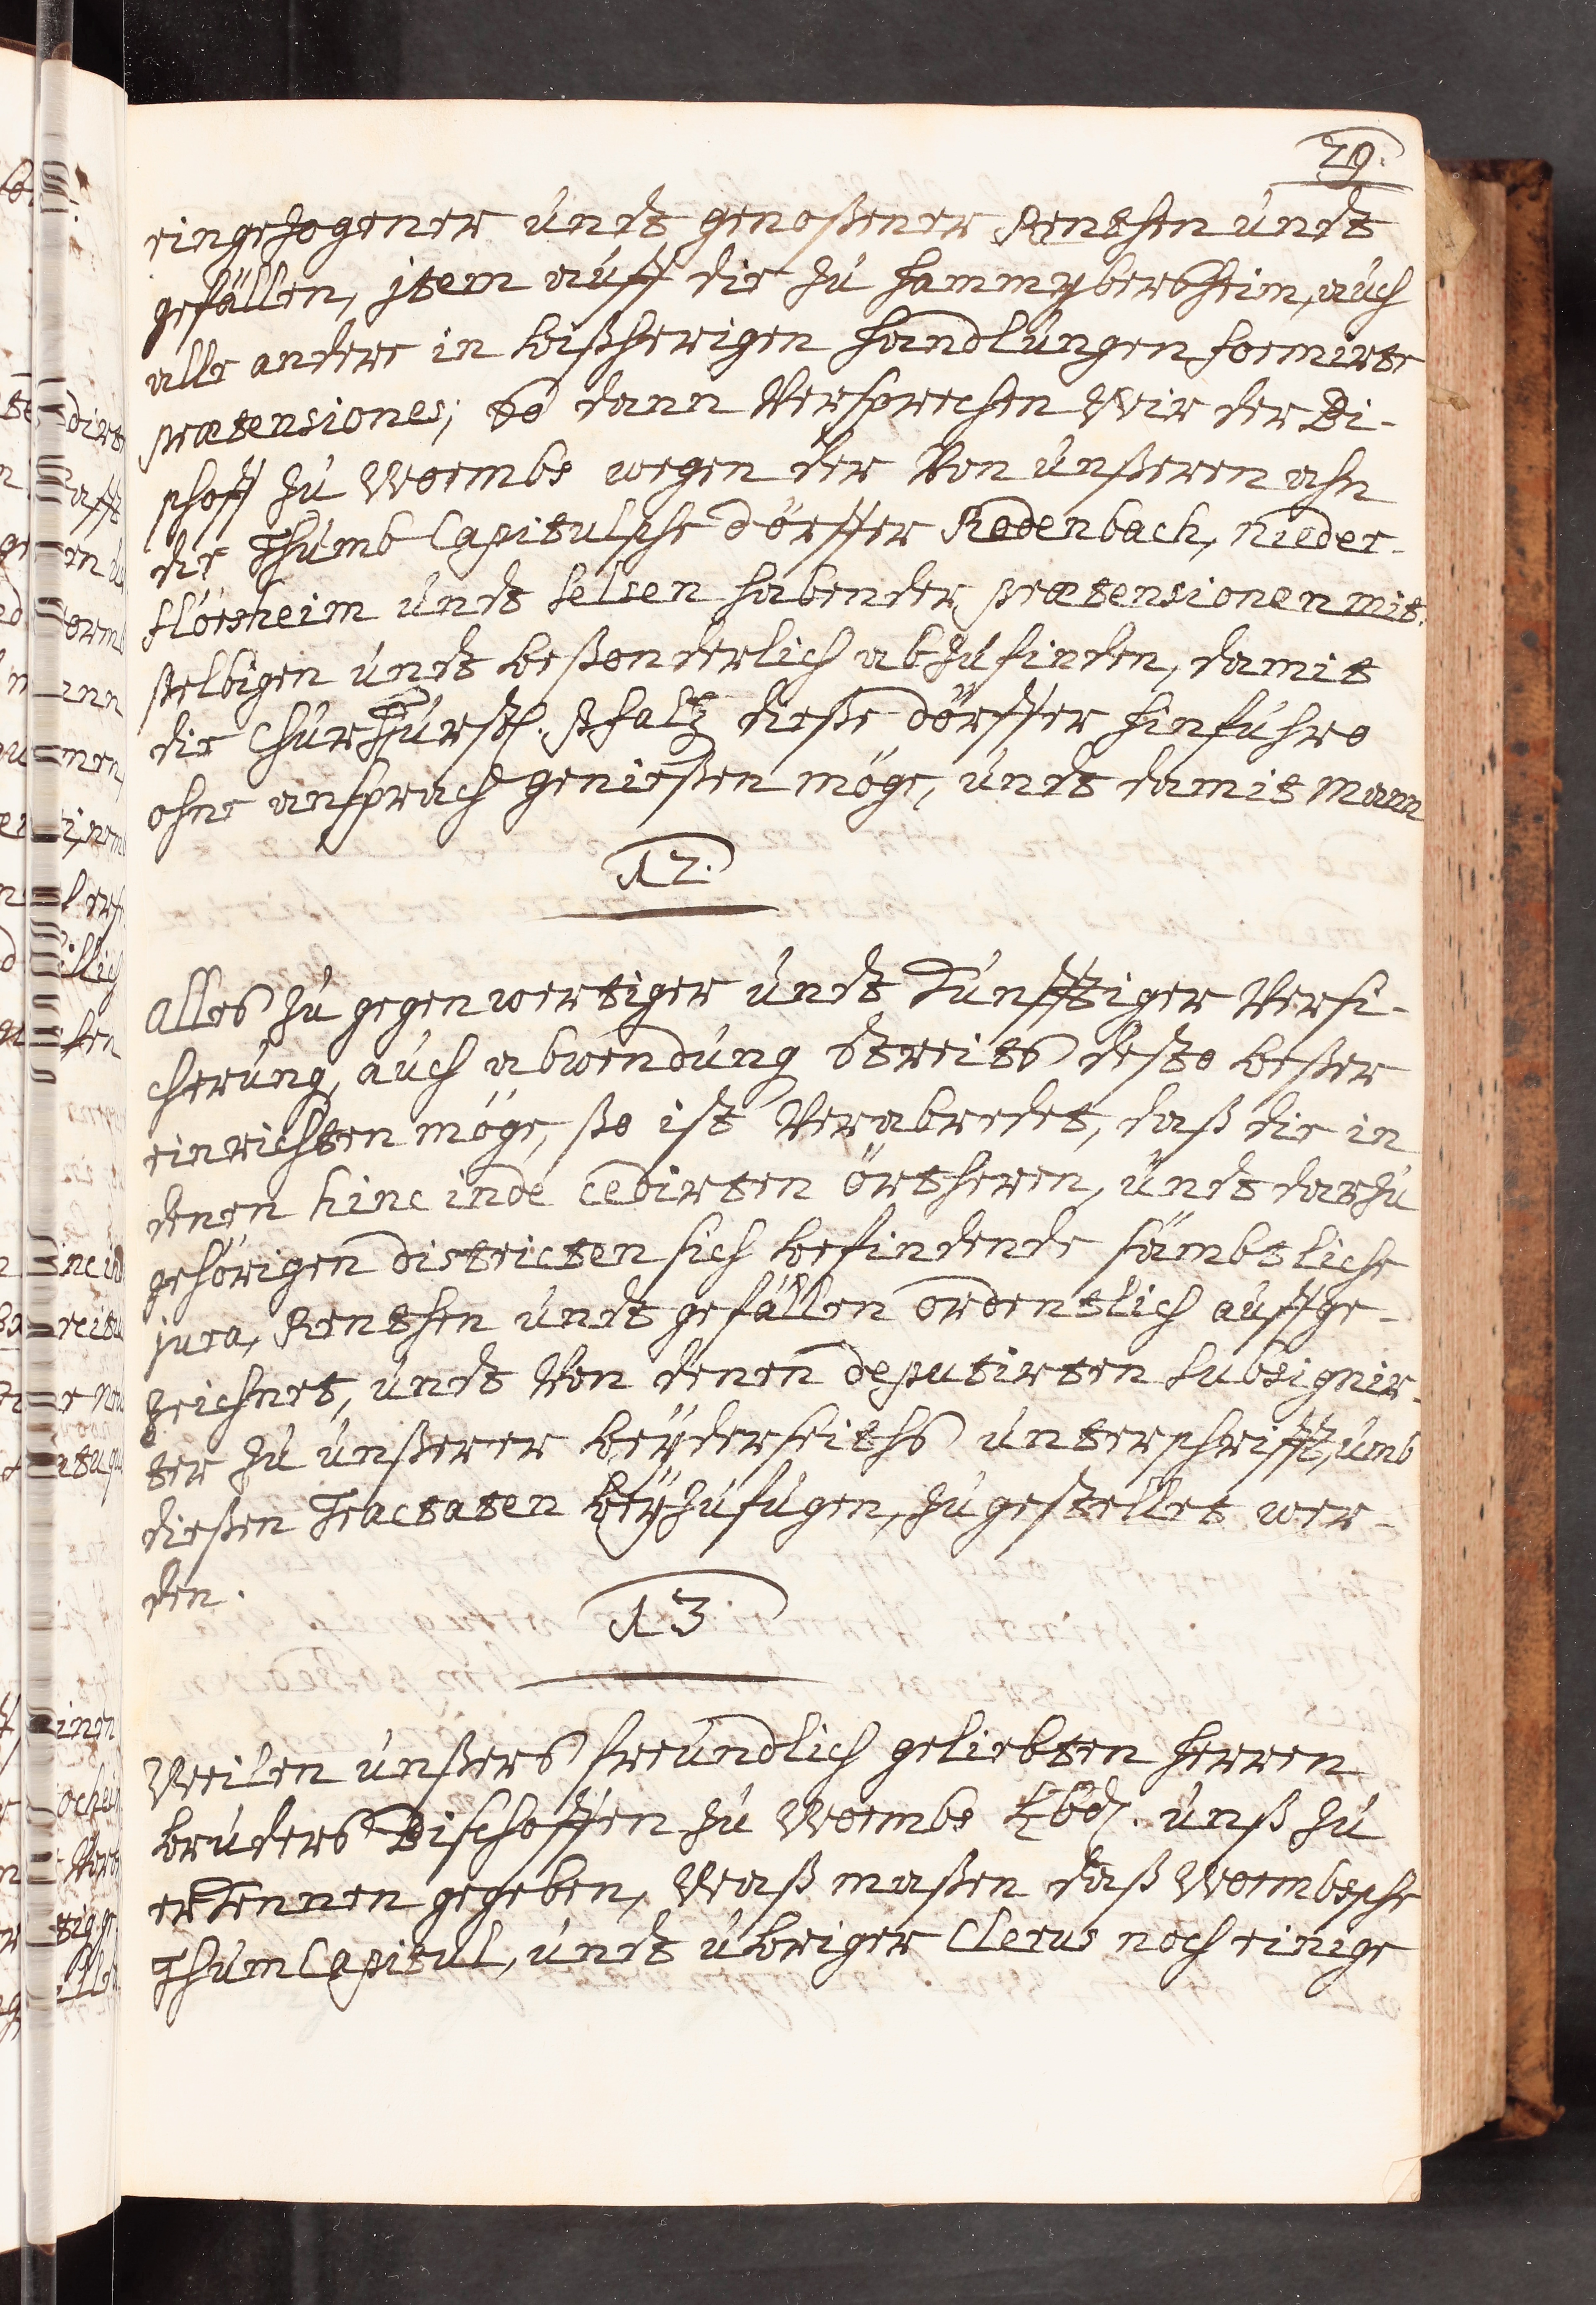 29.
eingezogener undt genoßener Renthen undt
gefällen, jtem auff die zu Hammyberßheim, auch
alle andere in bißherigen Handlungen formirte
prætensiones; so dann Versprechen Wir der Bi-
schoff zu Wormbs wegen der Von unßeren ahn
die Thumb Capitulsche dörffer Rodenbach, Nieder-
flörsheim undt Selsen habender prætensionen mit-
selbigen undt beßonderlich abzufinden, damit
die ChurFürstl. Pfaltz dieße dörffer hinfuhro
ohne ansprach genießen möge, undt damit Mann
12.
Alles zu gegenwertiger undt Künfftiger Versi-
cherung, auch abwendung Streits desto beßer
einrichten möge, ßo ist Verabredet, daß die in
denen hinc inde cedirten örtheren, undt darzu
gehörigen districten sich befindende sämbtliche
jura, Renthen undt gefällen ordentlich auffge-
zeichnet, undt Von denen deputirten subsignir-
ter zu unßerer beyderseiths unterschrifft, umb
dießen Tractaten beyzufugen, zugestellet wer-
den.
13
Weilen unßers freundlich geliebten Herren
bruders Bischoffen zu Wormbs Lbd. unß zu
erkennen gegeben, Waß maßen daß Wormbsche
Thum Capitul, undt ubriger Clerus noch einige